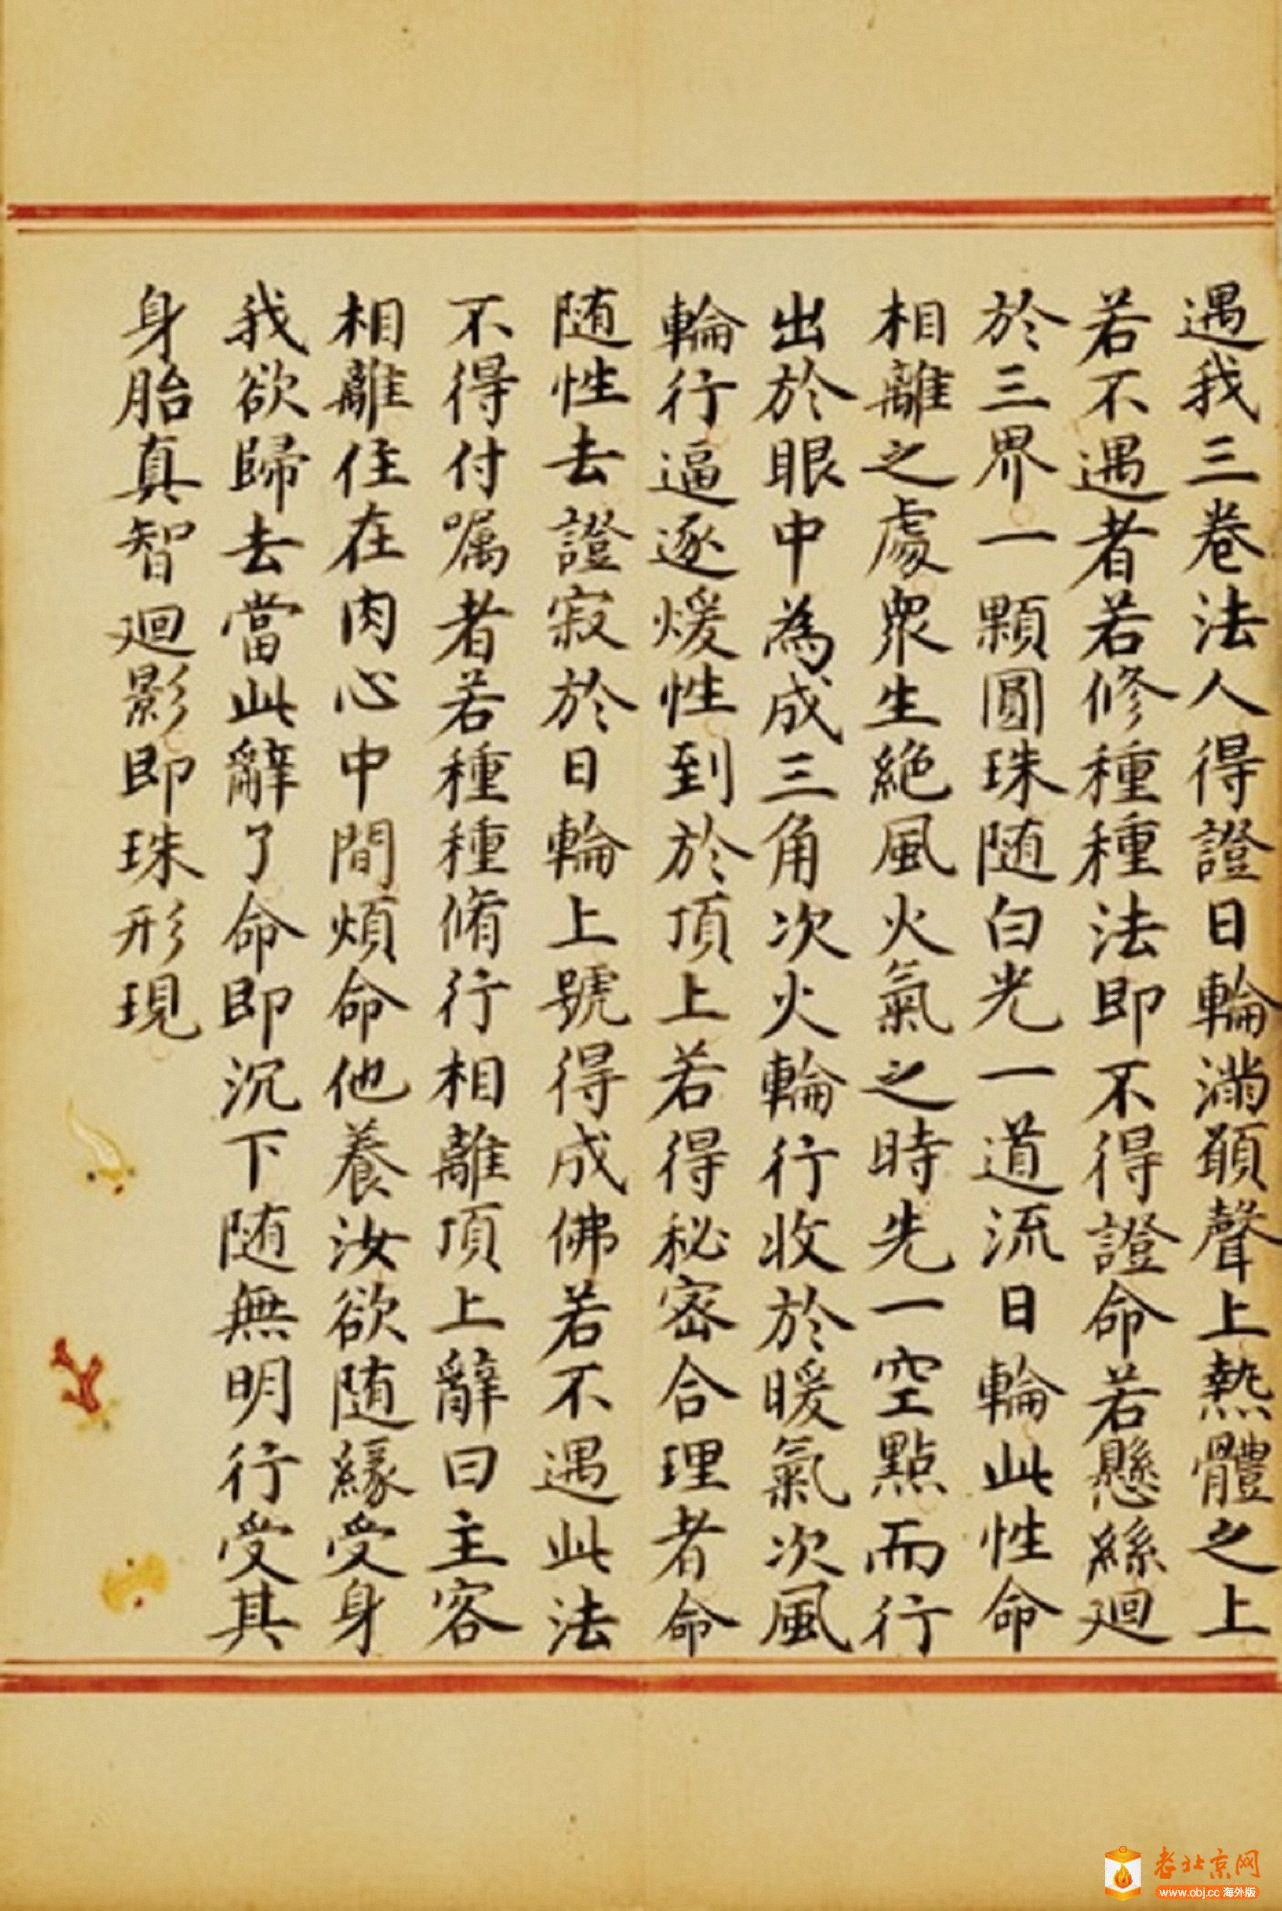 遇我三卷法人得證日輪滿頋聲上熱體之上
若不遇者若修種種法即不得證命若懸絲廻
於三界一顆圓珠随白光一道流日輪此性命
相離之處衆生絶風火氣之時先一空點而行
出於眼中為成三角次火輪行收於暖氣次風
輪行逼逐煖性到於頂上若得秘密合理者命
随性去證寂於日輪上號得成佛若不遇此法
不得付嘱者若種種脩行相離頂上辭曰主客
相離住在肉心中間煩命他養汝欲随緣受身
我欲歸去當此辭了命即沉下随無明行受其
身胎真智廻影即珠形現
老北京网
www.obj.cc 海外版